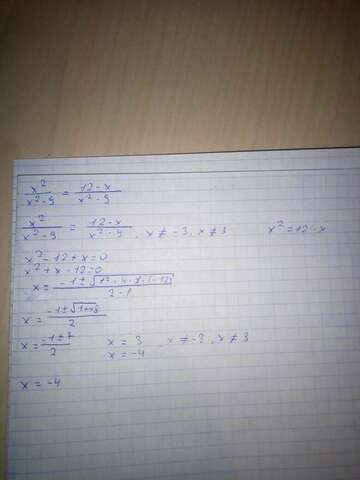 x²/(x²-9) = (12-x)/(x²-9)
x²/(x²-9) = (12-x)/(x²-9) , x ≠ -3, x ≠ 3 x² = 12-x
x² - 12 + x = 0
x² + x - 12 = 0
x = (-1 ± √(1² - 4 · 1 · (-12)))/(2 · 1)
x = (-1 ± √(1+48))/2
x = (-1 ± 7)/2 x = 3 , x ≠ -3, x ≠ 3
x = -4
x = -4